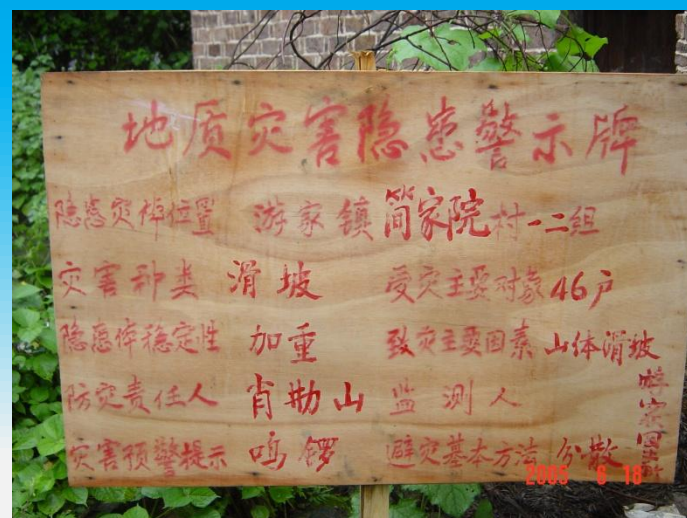 地质灾害隐患警示牌
隐患灾体位置 游家镇简家院村一二组
灾害种类 滑坡 受灾主要对象46户
隐患体稳定性 加重 致灾主要因素 山体滑坡
防灾责任人 肖勋山 监测人
灾害预警提示 鸣锣 避灾基本方法 分散
游家
2005 18